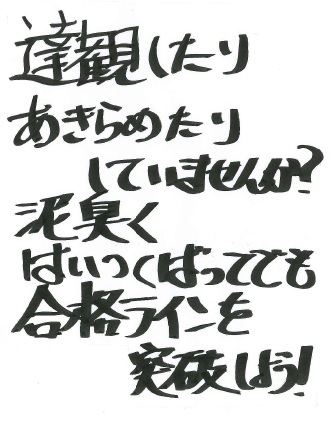 達観したり
あきらめたり
していませんか?
泥臭く
はいつくばってでも
合格ラインを
突破しよう!